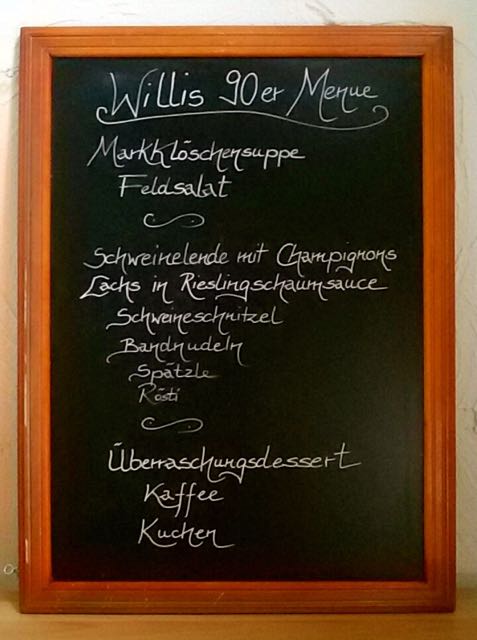 Willis 90er Menue
Markklöschensuppe
Feldsalat
Schweinelende mit Champignons
Lachs in Rieslingschaumsauce
Schweineschnitzel
Bandnudeln
Spätzle
Rösti
Überraschungsdessert
Kaffee
Kuchen